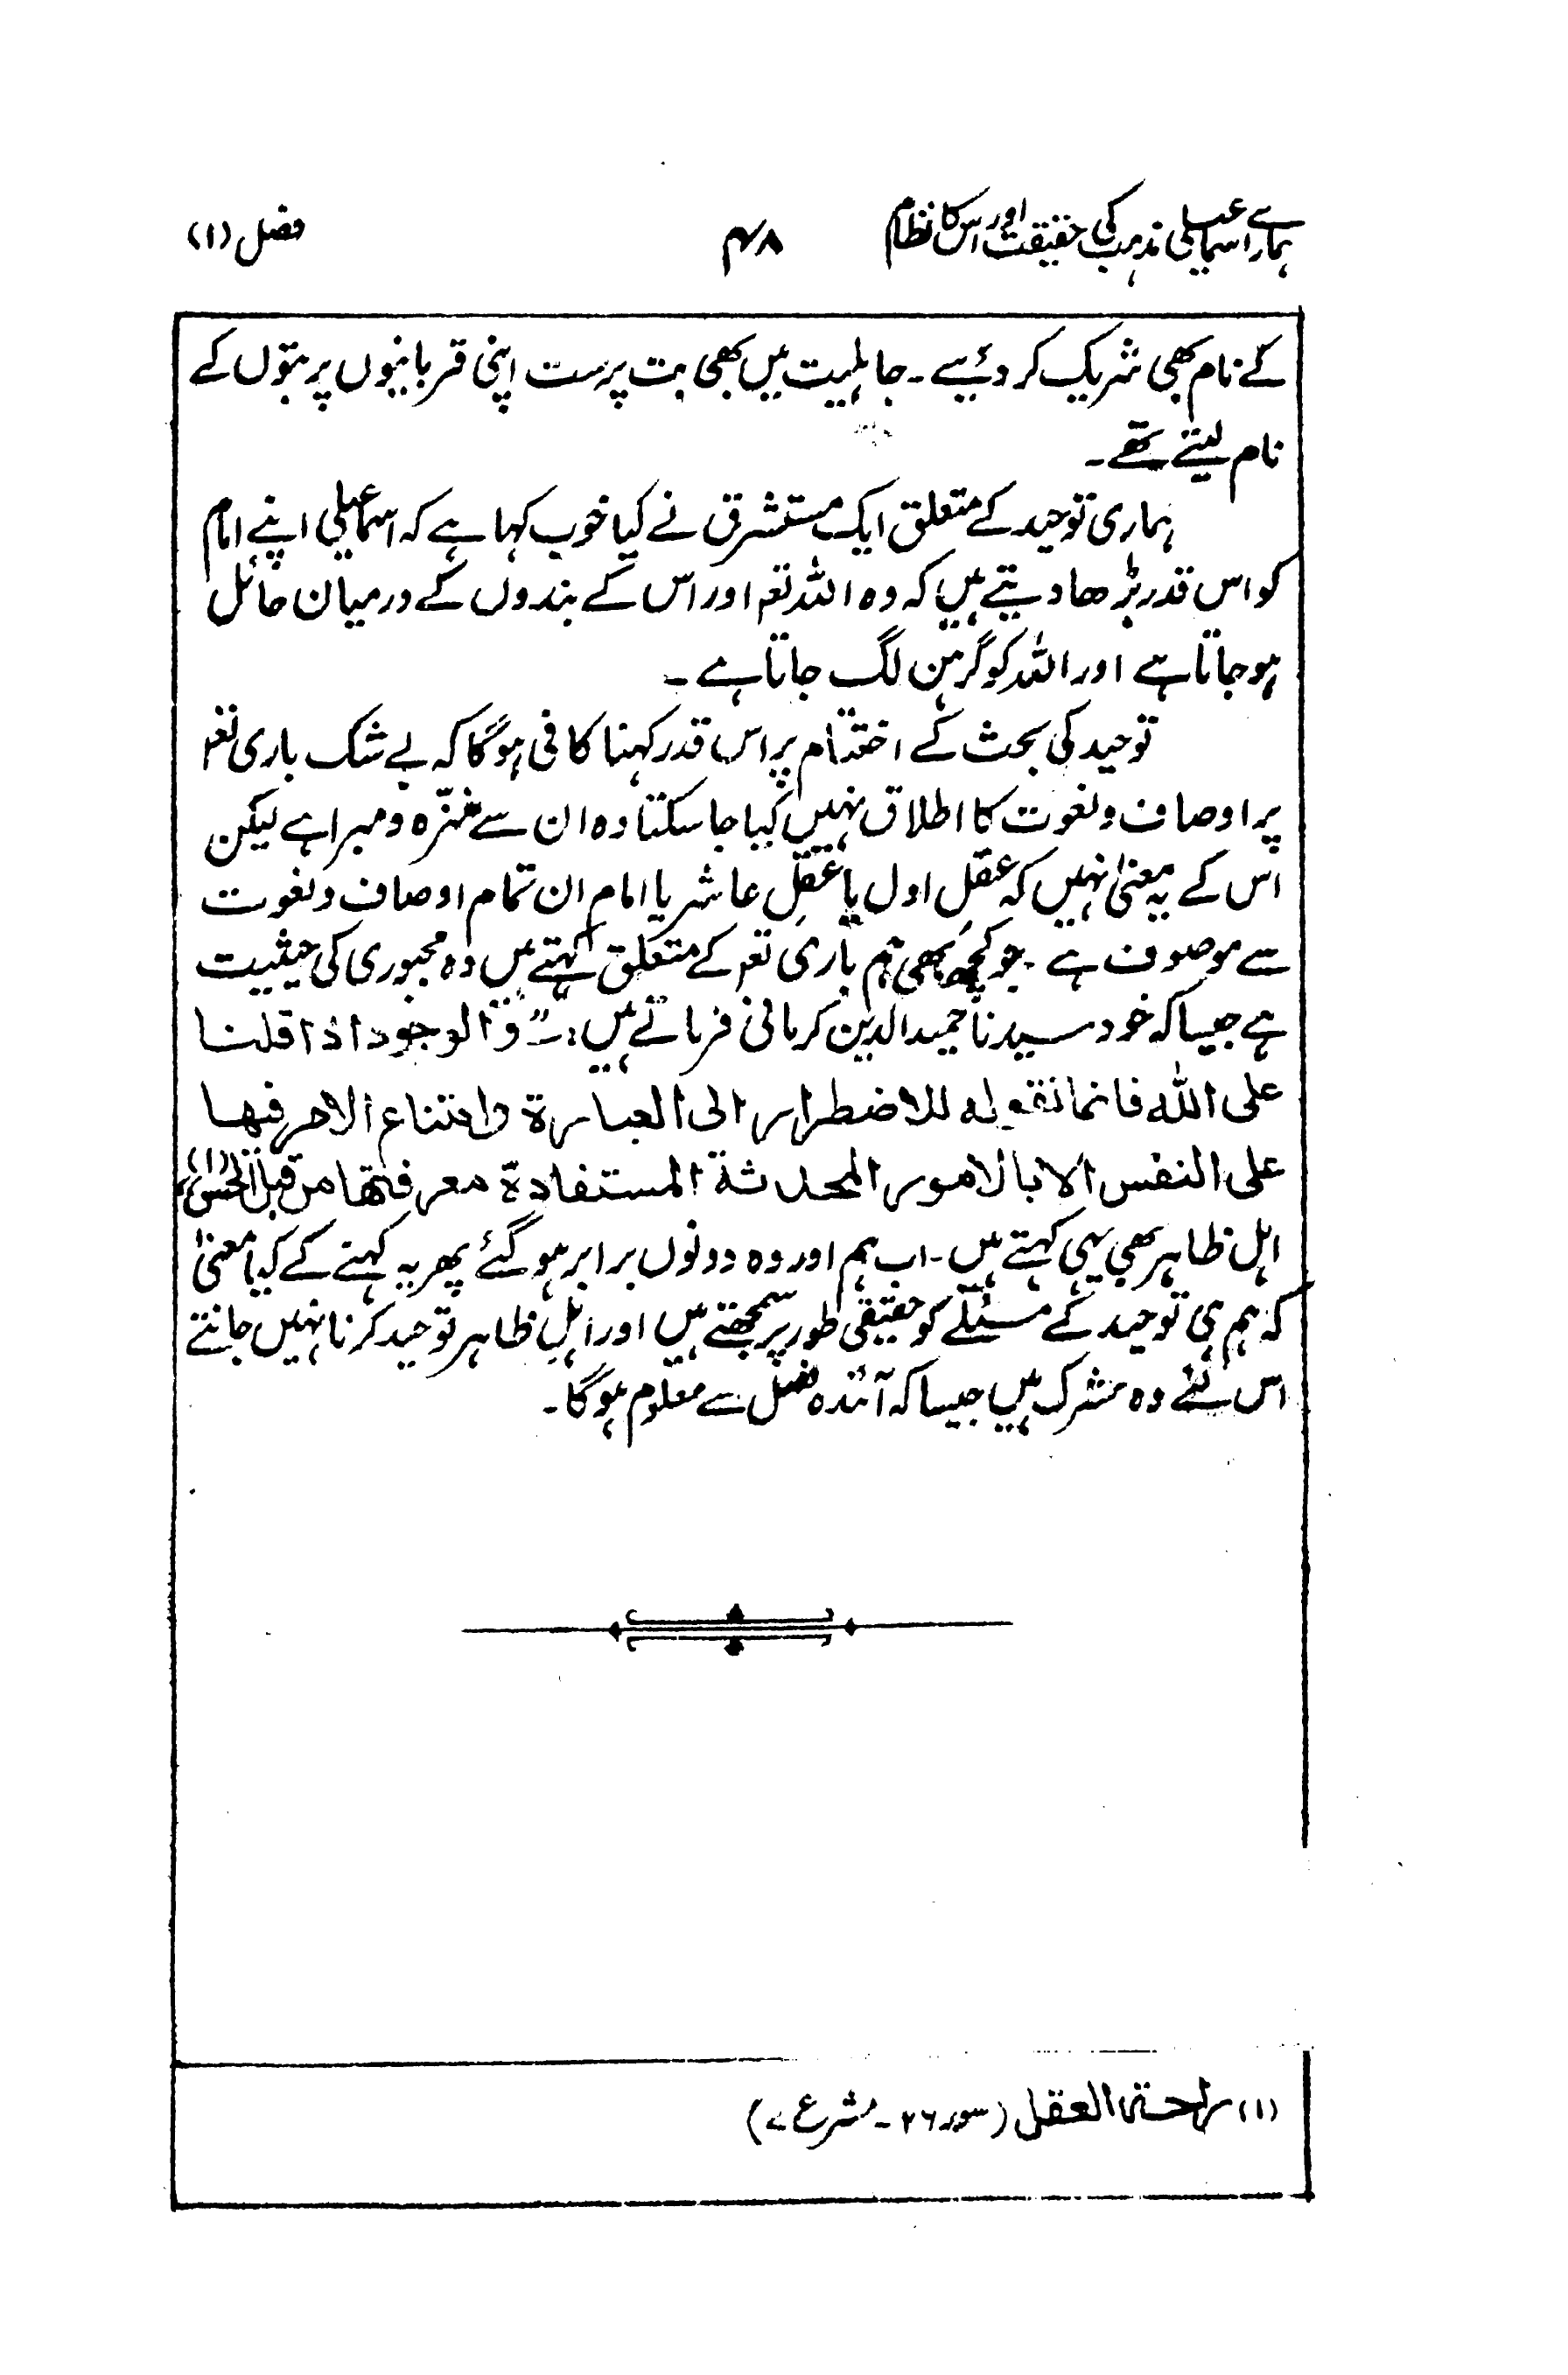 ہمارے اسماعیلی مذہب کی حقیقت اور اس کا نظام ۴۸ فصل (۱)
کے نام بھی شریک کر دئیے ۔ جاہلیت میں بھی بت پرست اپنی قربانیوں پر بتوں کے
نام لیتے تھے ۔
ہماری توحید کے متعلق ایک مستشرق نے کیا خوب کہا ہے کہ اسماعیلی اپنے امام
کو اس قدر بڑھا دیتے ہیں کہ وہ اللہ تعم اور اس کے بندوں کے درمیان حائل
ہو جاتا ہے اور اللہ کو گرہن لگ جاتا ہے ۔
توحید کی بحث کے اختتام پر اس قدر کہنا کافی ہوگا کہ بے شک باری تعم
پر اوصاف و نعوت کا اطلاق نہیں کیا جا سکتا وہ ان سے منزّہ و مبرا ہے لیکن
اس کے یہ معنیٰ نہیں کہ عقل اول یا عقلِ عاشر یا امام ان تمام اوصاف و نعوت
سے موصوف ہے ۔ جو کچھ بھی ہم باری تعم کے متعلق کہتے ہیں وہ مجبوری کی حیثیت
ہے جیسا کہ خود سیدنا حمید الدین کرمانی فرماتے ہیں :۔ "والوجود اذا قلنا
علی اللہ فانما نقولہ للاضطرار الی العبارة وامتناع الامر فیها
علی النفس الا بالامور المحدثة المستفادة معرفتها من قبل الحس (۱)"
اہل ظاہر بھی یہی کہتے ہیں ۔ اب ہم اور وہ دونوں برابر ہو گئے پھر یہ کہنے کے کیا معنیٰ
کہ ہم ہی توحید کے مسئلے کو حقیقی طور پر سمجھتے ہیں اور اہلِ ظاہر توحید کرنا نہیں جانتے
اس لئے وہ مشرک ہیں جیسا کہ آئندہ فصل سے معلوم ہوگا ۔
(۱) راحة العقل (سور ۲۶ ۔ مشرع ۷)